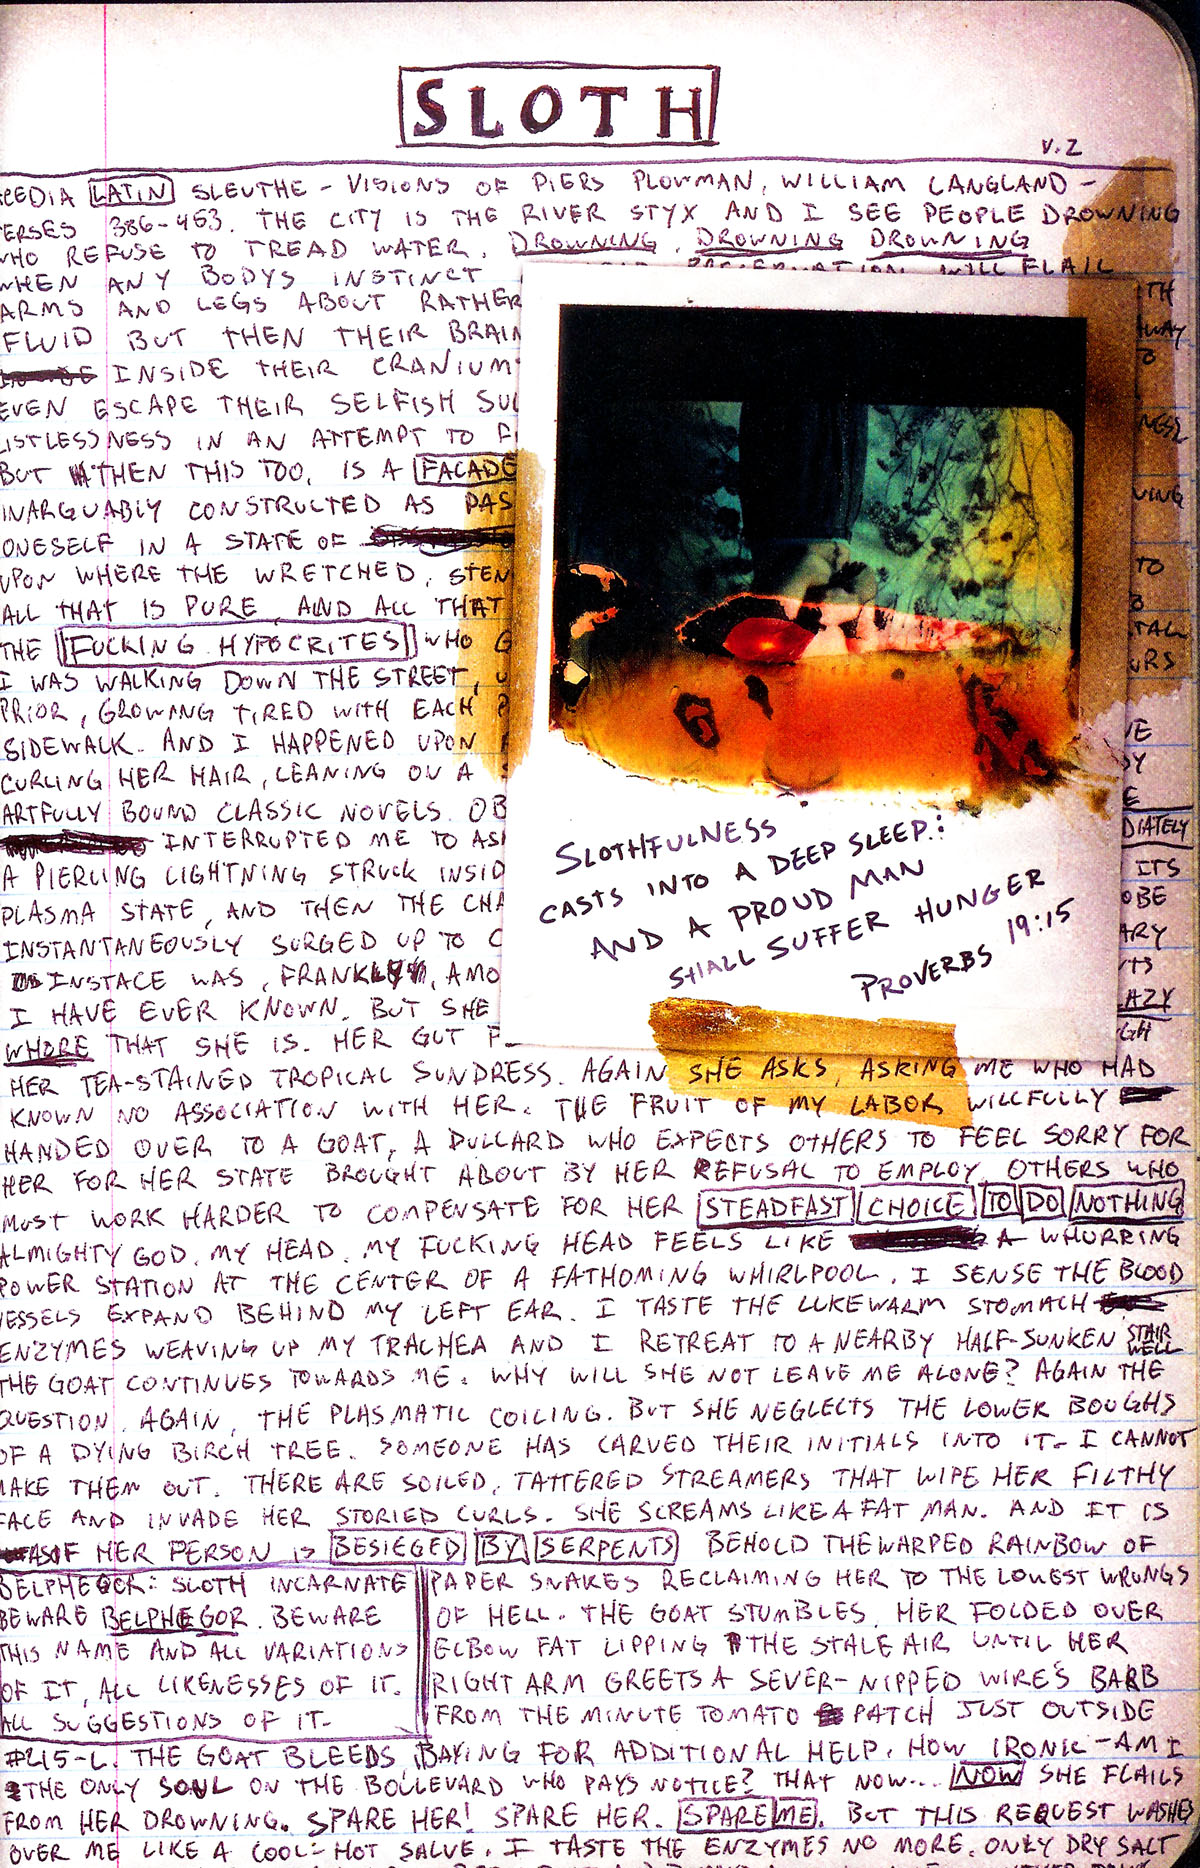 SLOTH
V.2
CEDIA LATIN SLEUTHE - VISIONS OF PIERS PLOWMAN, WILLIAM LANGLAND -
ERSES 386-453. THE CITY IS THE RIVER STYX AND I SEE PEOPLE DROWNING
WHO REFUSE TO TREAD WATER. DROWNING. DROWNING DROWNING
WHEN ANY BODYS INSTINCT PRESERVATION WILL FLAIL
ARMS AND LEGS ABOUT RATHER
FLUID BUT THEN THEIR BRAIN
INSIDE THEIR CRANIUM
EVEN ESCAPE THEIR SELFISH
LISTLESSNESS IN AN ATTEMPT TO
BUT THEN THIS TOO, IS A FACADE
INARGUABLY CONSTRUCTED AS PAS
ONESELF IN A STATE OF
UPON WHERE THE WRETCHED, STEN
ALL THAT IS PURE AND ALL THAT
THE FUCKING HYPOCRITES WHO G
I WAS WALKING DOWN THE STREET,
PRIOR, GROWING TIRED WITH EACH
SIDEWALK. AND I HAPPENED UPON
CURLING HER HAIR, LEANING ON A
ARTFULLY BOUND CLASSIC NOVELS. OB
INTERRUPTED ME TO AS
A PIERCING LIGHTNING STRUCK INSID
PLASMA STATE, AND THEN THE CHA
INSTANTANEOUSLY SURGED UP TO C
INSTACE WAS, FRANKLY, AMO
I HAVE EVER KNOWN. BUT SHE
WHORE THAT SHE IS. HER GUT
DIATELY
ITS
OBE
ARY
LAZY
SLOTHFULNESS
CASTS INTO A DEEP SLEEP:
AND A PROUD MAN
SHALL SUFFER HUNGER
PROVERBS 19:15
HER TEA-STAINED TROPICAL SUNDRESS. AGAIN SHE ASKS, ASKING ME WHO HAD
KNOWN NO ASSOCIATION WITH HER. THE FRUIT OF MY LABOR WILLFULLY
HANDED OVER TO A GOAT, A DULLARD WHO EXPECTS OTHERS TO FEEL SORRY FOR
HER FOR HER STATE BROUGHT ABOUT BY HER REFUSAL TO EMPLOY, OTHERS WHO
MUST WORK HARDER TO COMPENSATE FOR HER STEADFAST CHOICE TO DO NOTHING
ALMIGHTY GOD. MY HEAD. MY FUCKING HEAD FEELS LIKE A WHURRING
POWER STATION AT THE CENTER OF A FATHOMING WHIRLPOOL. I SENSE THE BLOOD
VESSELS EXPAND BEHIND MY LEFT EAR. I TASTE THE LUKEWARM STOMACH
ENZYMES WEAVING UP MY TRACHEA AND I RETREAT TO A NEARBY HALF-SUNKEN STAIR WELL
THE GOAT CONTINUES TOWARDS ME. WHY WILL SHE NOT LEAVE ME ALONE? AGAIN THE
QUESTION. AGAIN, THE PLASMATIC COILING. BUT SHE NEGLECTS THE LOWER BOUGHS
OF A DYING BIRCH TREE. SOMEONE HAS CARVED THEIR INITIALS INTO IT - I CANNOT
MAKE THEM OUT. THERE ARE SOILED, TATTERED STREAMERS THAT WIPE HER FILTHY
FACE AND INVADE HER STORIED CURLS. SHE SCREAMS LIKE A FAT MAN. AND IT IS
AS IF HER PERSON IS BESIEGED BY SERPENTS BEHOLD THE WARPED RAINBOW OF
PAPER SNAKES RECLAIMING HER TO THE LOWEST WRUNGS
OF HELL. THE GOAT STUMBLES, HER FOLDED OVER
ELBOW FAT LIPPING THE STALE AIR UNTIL HER
RIGHT ARM GREETS A SEVER-NIPPED WIRE'S BARB
FROM THE MINUTE TOMATO PATCH JUST OUTSIDE
BELPHEGOR: SLOTH INCARNATE
BEWARE BELPHEGOR. BEWARE
THIS NAME AND ALL VARIATIONS
OF IT, ALL LIKENESSES OF IT.
ALL SUGGESTIONS OF IT-
#415-L. THE GOAT BLEEDS, BAYING FOR ADDITIONAL HELP. HOW IRONIC - AM I
THE ONLY SOUL ON THE BOULEVARD WHO PAYS NOTICE? THAT NOW... NOW SHE FLAILS
FROM HER DROWNING. SPARE HER! SPARE HER. SPARE ME. BUT THIS REQUEST WASHES
OVER ME LIKE A COOL-HOT SALVE. I TASTE THE ENZYMES NO MORE. ONLY DRY SALT